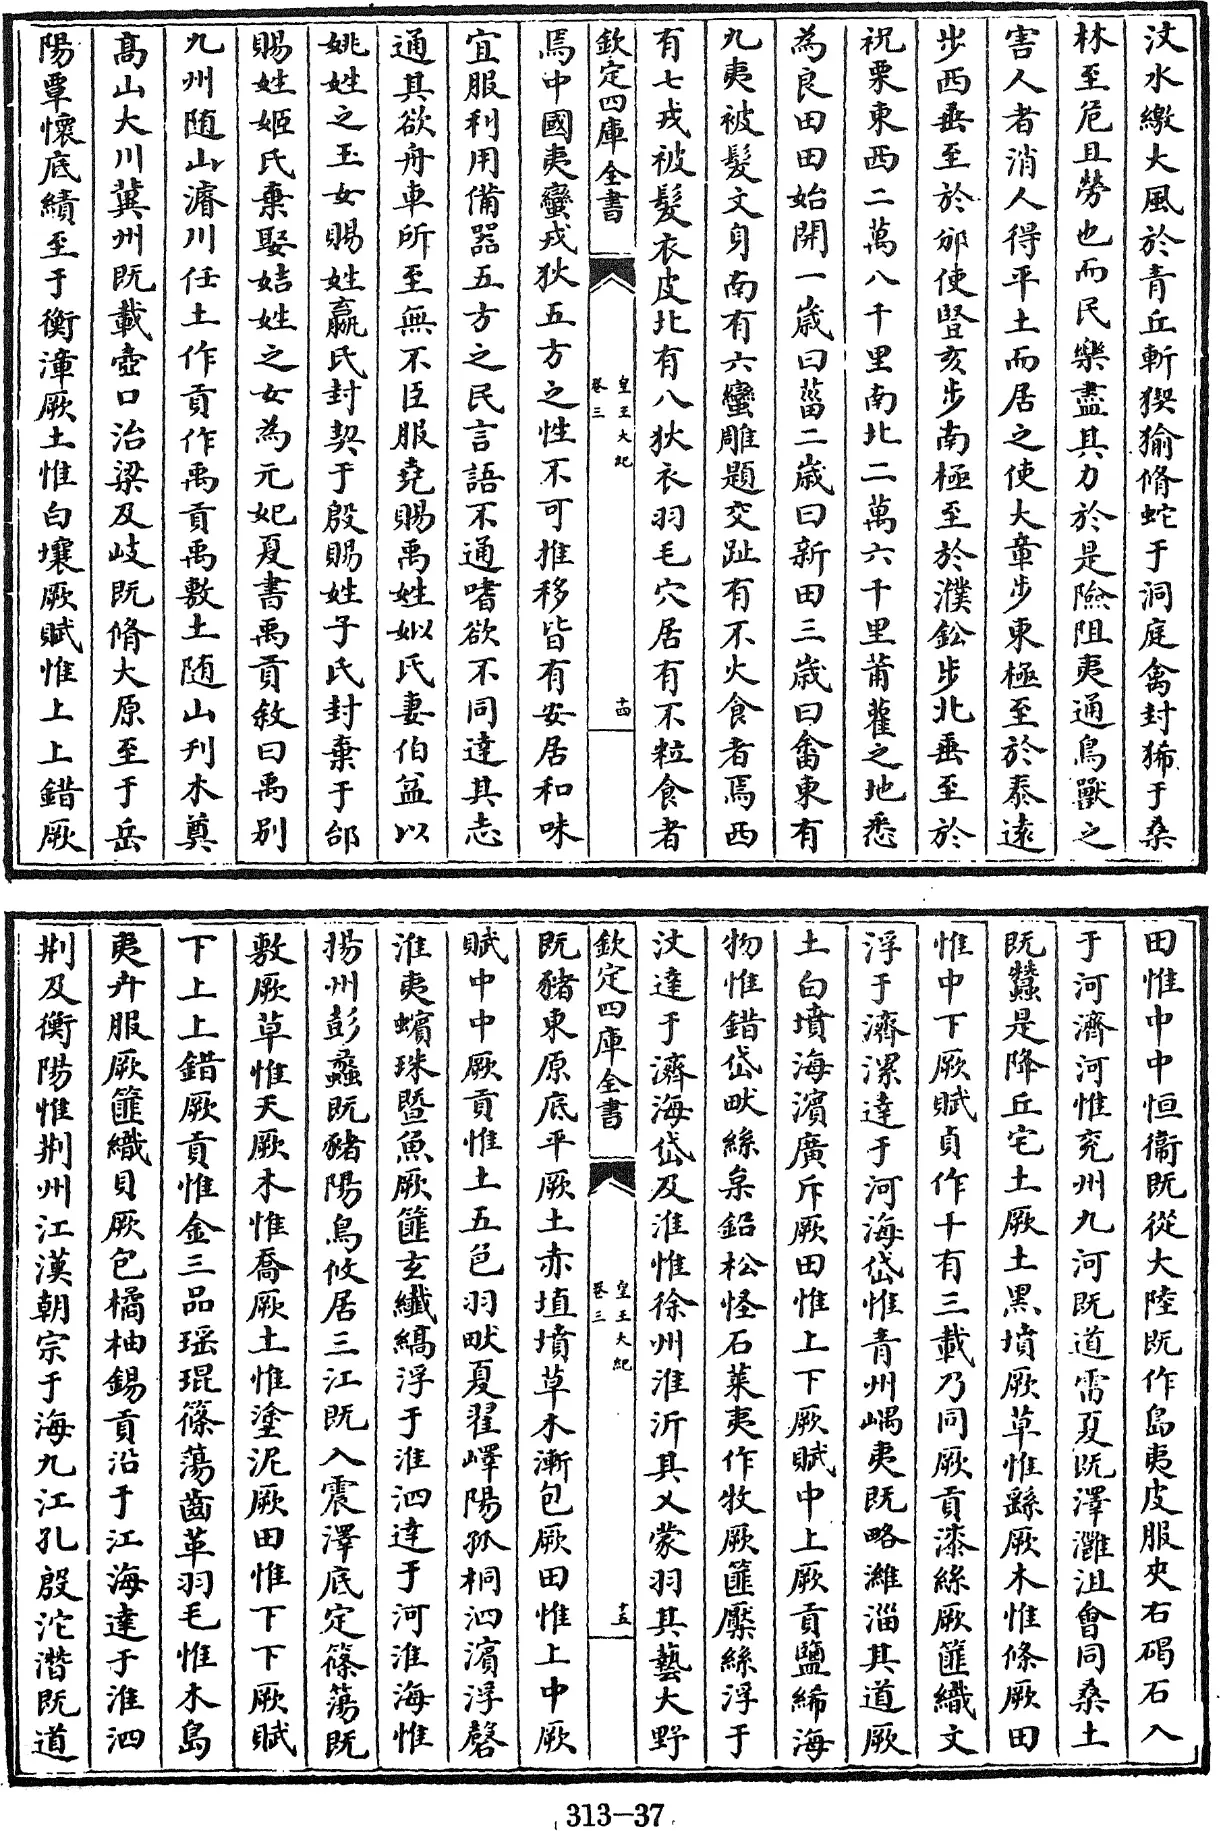 汶水繳大風於青丘斬猰㺄脩蛇于洞庭禽封狶于桑
林至危且勞也而民樂盡其力於是險阻夷通鳥獸之
害人者消人得平土而居之使大章步東極至於泰遠
步西垂至於邠使豎亥步南極至於濮鈆步北垂至於
祝栗東西二萬八千里南北二萬六千里莆雚之地悉
為良田田始開一歲曰菑二歲曰新田三歲曰畬東有
九夷被髮文身南有六蠻雕題交趾有不火食者焉西
有七戎被髮衣皮北有八狄衣羽毛穴居有不粒食者
欽定四庫全書
皇王大紀
卷三
十四
焉中國夷蠻戎狄五方之性不可推移皆有安居和味
宜服利用備器五方之民言語不通嗜欲不同達其志
通其欲舟車所至無不臣服堯賜禹姓姒氏妻伯益以
姚姓之玉女賜姓嬴氏封契于殷賜姓子氏封棄于邰
賜姓姬氏棄娶姞姓之女為元妃夏書禹貢敘曰禹別
九州隨山濬川任土作貢作禹貢禹敷土隨山刋木奠
高山大川冀州既載壺口治梁及岐既脩大原至于岳
陽覃懷底績至于衡漳厥土惟白壤厥賦惟上上錯厥
田惟中中恒衞既從大陸既作島夷皮服夾右碣石入
于河濟河惟兖州九河既道雷夏既澤灉沮會同桑土
既蠶是降丘宅土厥土黑墳厥草惟繇厥木惟條厥田
惟中下厥賦貞作十有三載乃同厥貢漆絲厥篚織文
浮于濟漯達于河海岱惟青州嵎夷既略濰淄其道厥
土白墳海濱廣斥厥田惟上下厥賦中上厥貢鹽絺海
物惟錯岱畎絲枲鈆松怪石萊夷作牧厥篚檿絲浮于
汶達于濟海岱及淮惟徐州淮沂其乂蒙羽其藝大野
欽定四庫全書
皇王大紀
卷三
十五
既豬東原底平厥土赤埴墳草木漸包厥田惟上中厥
賦中中厥貢惟土五色羽畎夏翟嶧陽孤桐泗濱浮磬
淮夷蠙珠暨魚厥篚玄纖縞浮于淮泗達于河淮海惟
揚州彭蠡既豬陽鳥攸居三江既入震澤底定篠蕩既
敷厥草惟夭厥木惟喬厥土惟塗泥厥田惟下下厥賦
下上上錯厥貢惟金三品瑶琨篠蕩齒革羽毛惟木島
夷卉服厥篚織貝厥包橘柚錫貢沿于江海達于淮泗
荆及衡陽惟荆州江漢朝宗于海九江孔殷沱潛既道
313-37